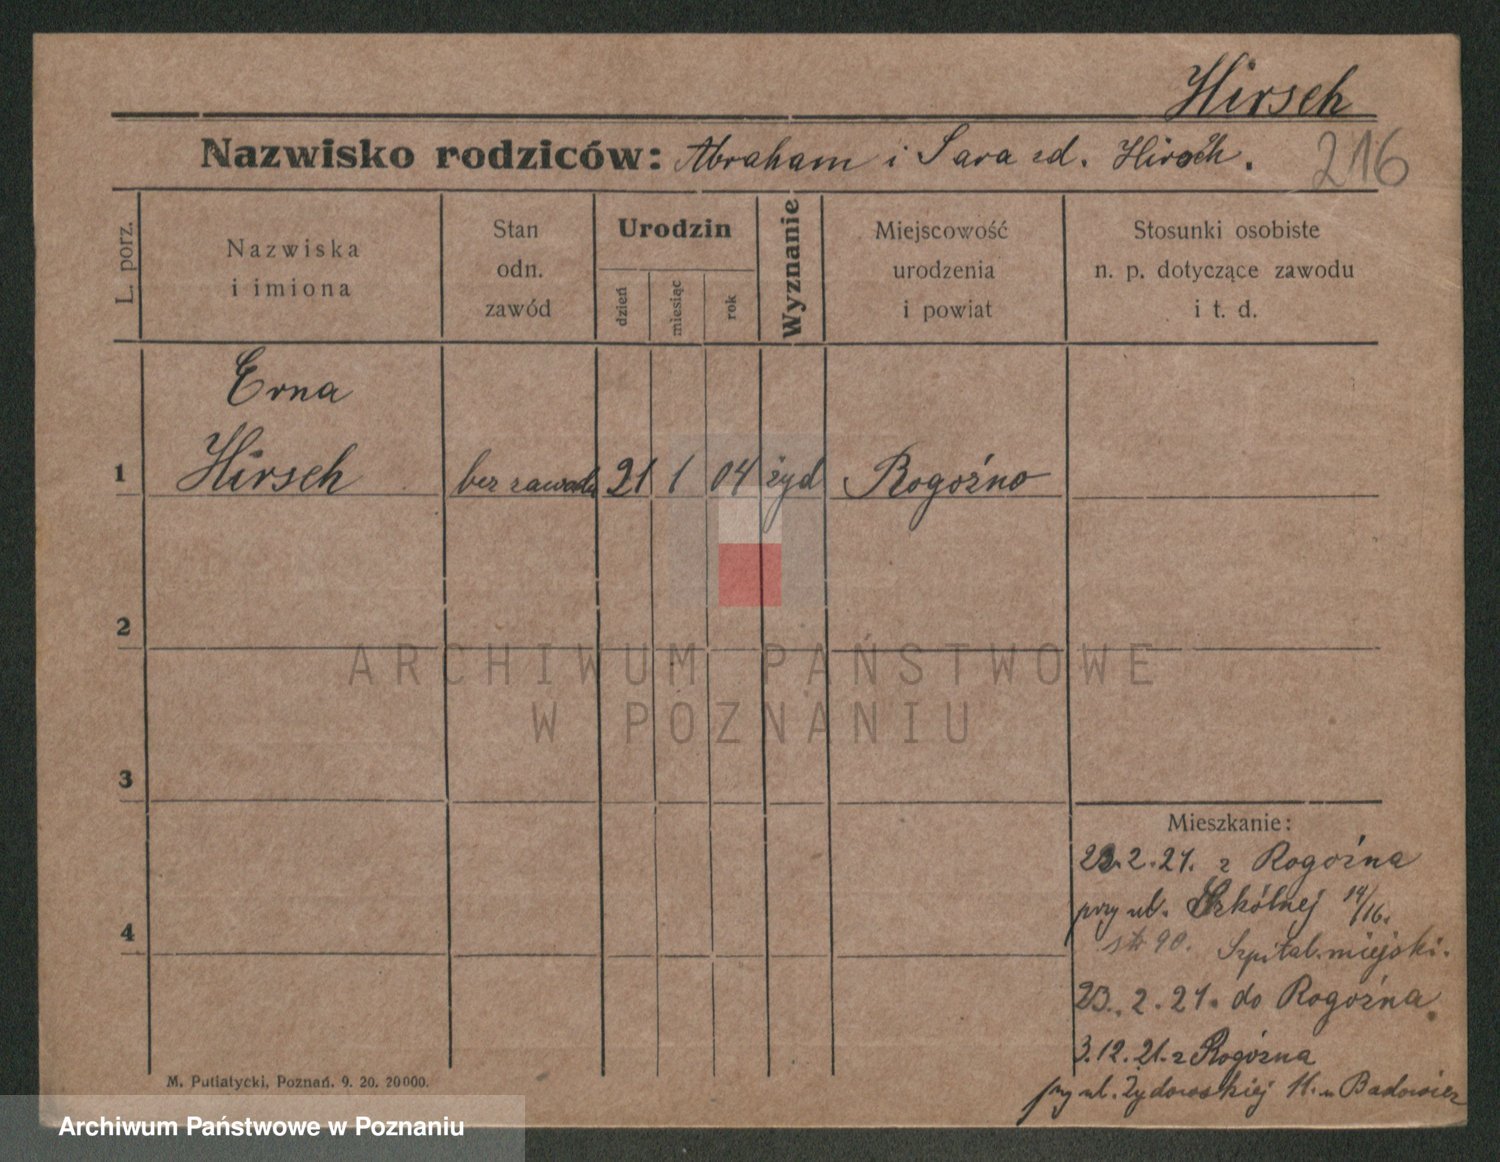 Hirsch
Nazwisko rodziców: Abraham i Sara zd. Hirsch.
216
L. porz.
Nazwiska
i imiona
Stan
odn.
zawód
Urodzin
dzień
miesiąc
rok
Wyznanie
Miejscowość
urodzenia
i powiat
Stosunki osobiste
n. p. dotyczące zawodu
i t. d.
Erna
1 Hirsch bez zawodu 21 1 04 żyd Rogoźno
2
ARCHIWUM PAŃSTWOWE
W POZNANIU
3
Mieszkanie:
23.2.21. z Rogoźna
przy ul. Szkólnej 14/16.
4
str 90. Szpital miejski.
23.2.21. do Rogoźna.
3.12.21. z Rogoźna
przy ul. Żydowskiej 11. u
M. Putiatycki, Poznań. 9. 20. 20000.
Archiwum Państwowe w Poznaniu